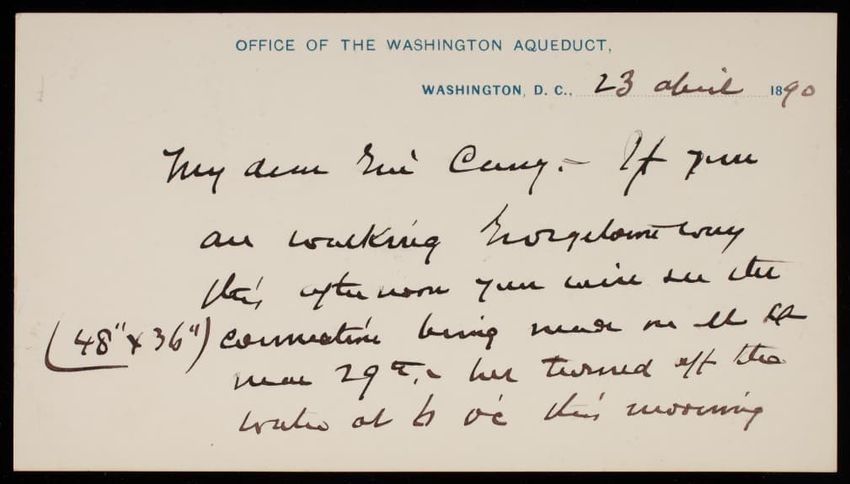 OFFICE OF THE WASHINGTON AQUEDUCT,
WASHINGTON, D. C., 23 april 1890
My dear Genl Casey:- If you
are walking Georgetown way
this afternoon you will see the
(48" x 36") connection being made on M St
near 29th,- turned off the
water at 6 o'c this morning